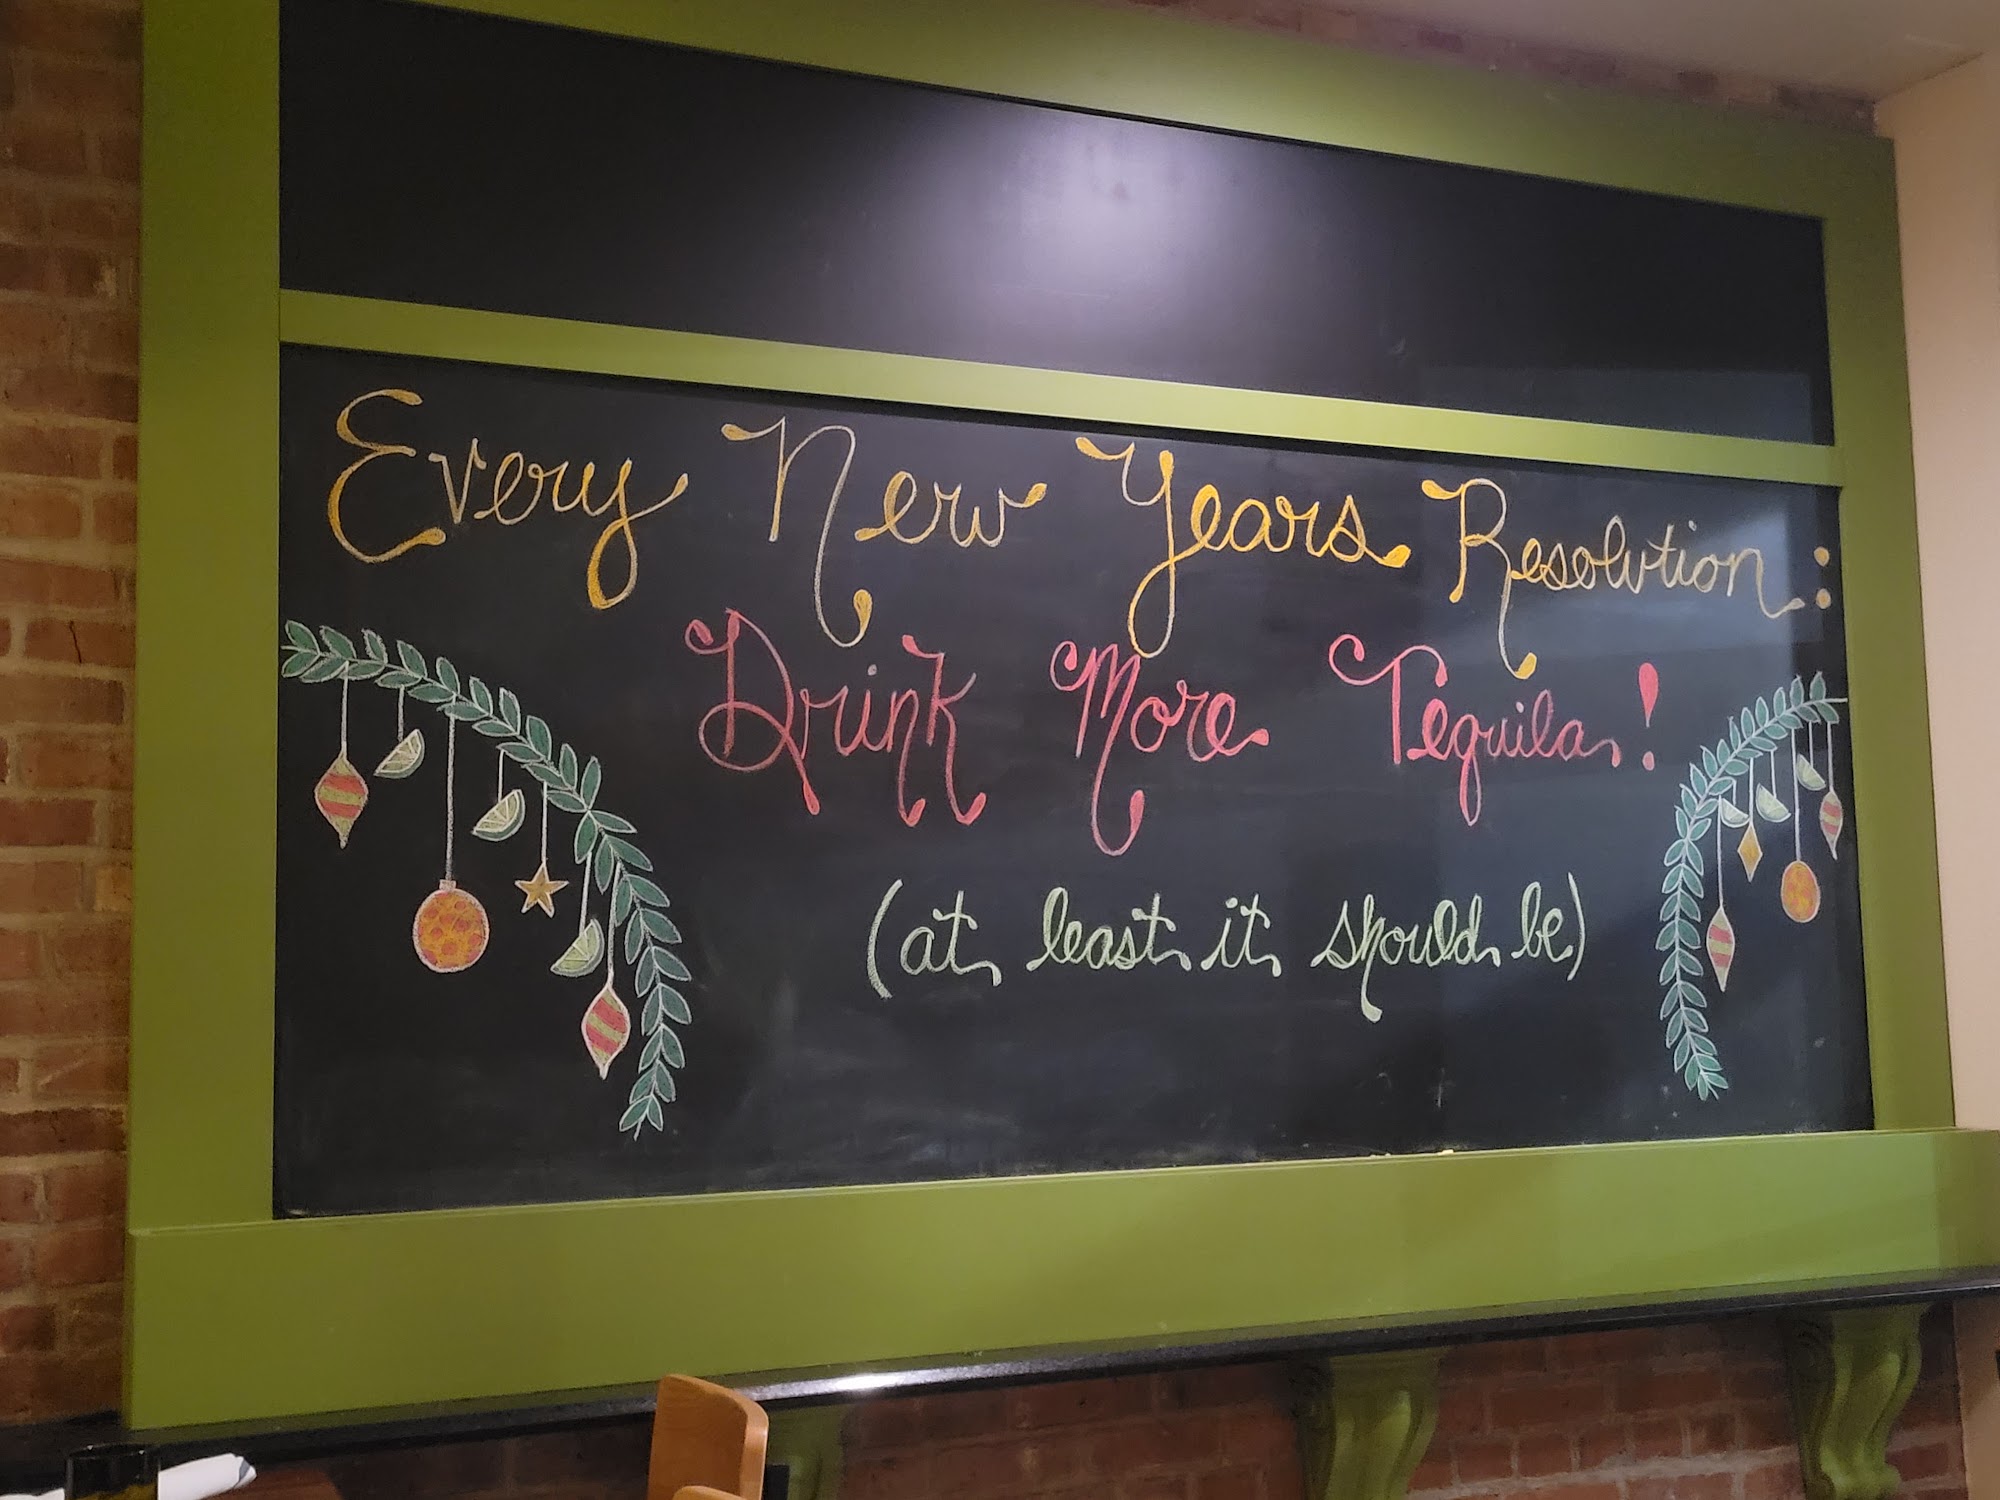 Every New Years Resolution:
Drink More Tequila!
(at least it should be)